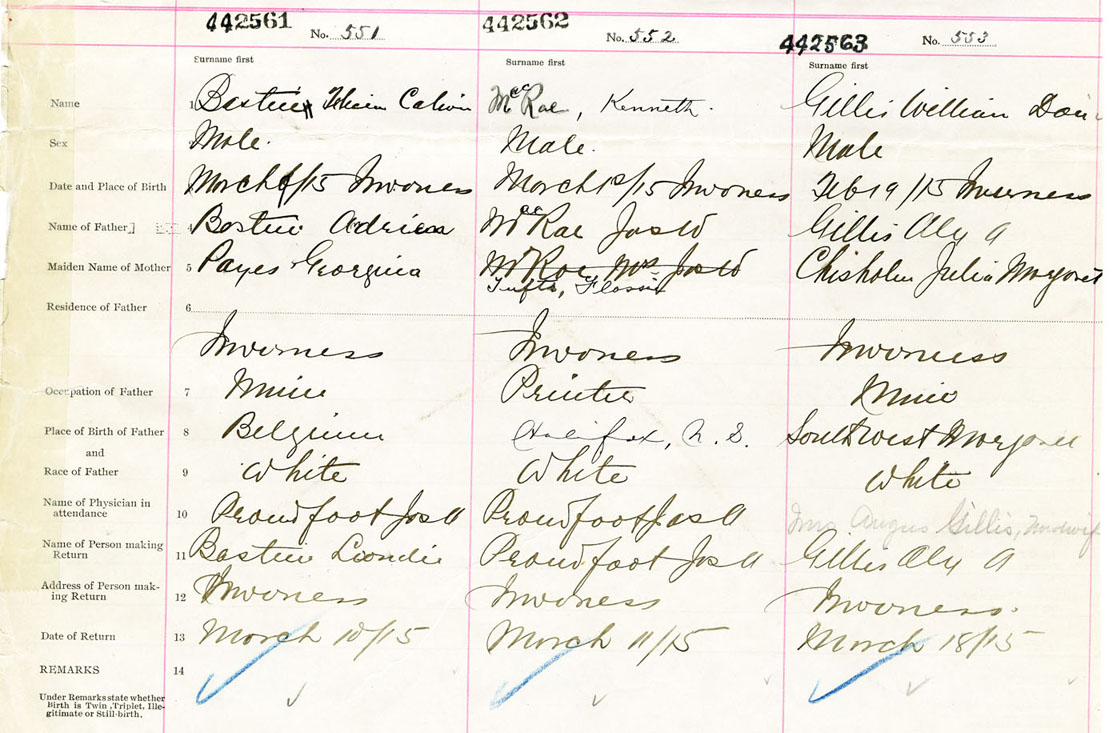 442561 No. 551 442562 No. 552 442563 No. 553
Surname first Surname first Surname first
Name 1 Calvin McRae, Kenneth. Gillis William Dan
Sex Male. Male. Male
Date and Place of Birth March /15 Inverness March 1st/15 Inverness Feb 19/15 Inverness
Name of Father 4 Bastin McRae Jas W Gillis Alex A
Maiden Name of Mother 5 Payes Georgina McRae Mrs Jas W Chisholm Julia Margaret
Tufts, Flossie
Residence of Father 6
Inverness Inverness Inverness
Occupation of Father 7 Miner Printer Miner
Place of Birth of Father 8 Belgium Halifax, N. S. South West Margaree
and
Race of Father 9 White White White
Name of Physician in
attendance 10 Proudfoot Jas A Proudfoot Jas A Mrs Angus Gillis, Midwife
Name of Person making
Return 11 Bastin Proudfoot Jas A Gillis Alex A
Address of Person mak-
ing Return 12 Inverness Inverness Inverness.
Date of Return 13 March 10/15 March 11/15 March 18/15
REMARKS 14
Under Remarks state whether
Birth is Twin, Triplet, Ille-
gitimate or Still-birth.